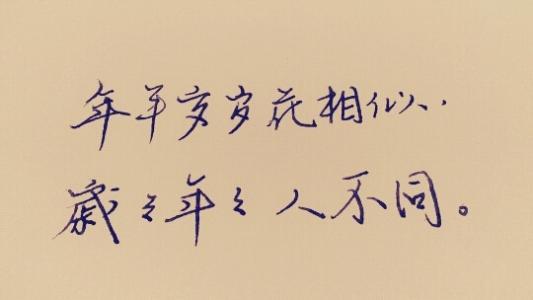 年年岁岁花相似.
歲々年々人不同。